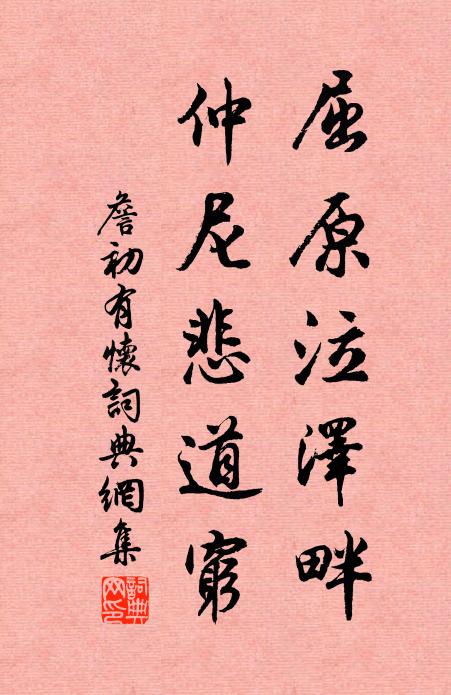 屈原泣澤畔
仲尼悲道窮
詹初有懷詞典網集
詞典網印